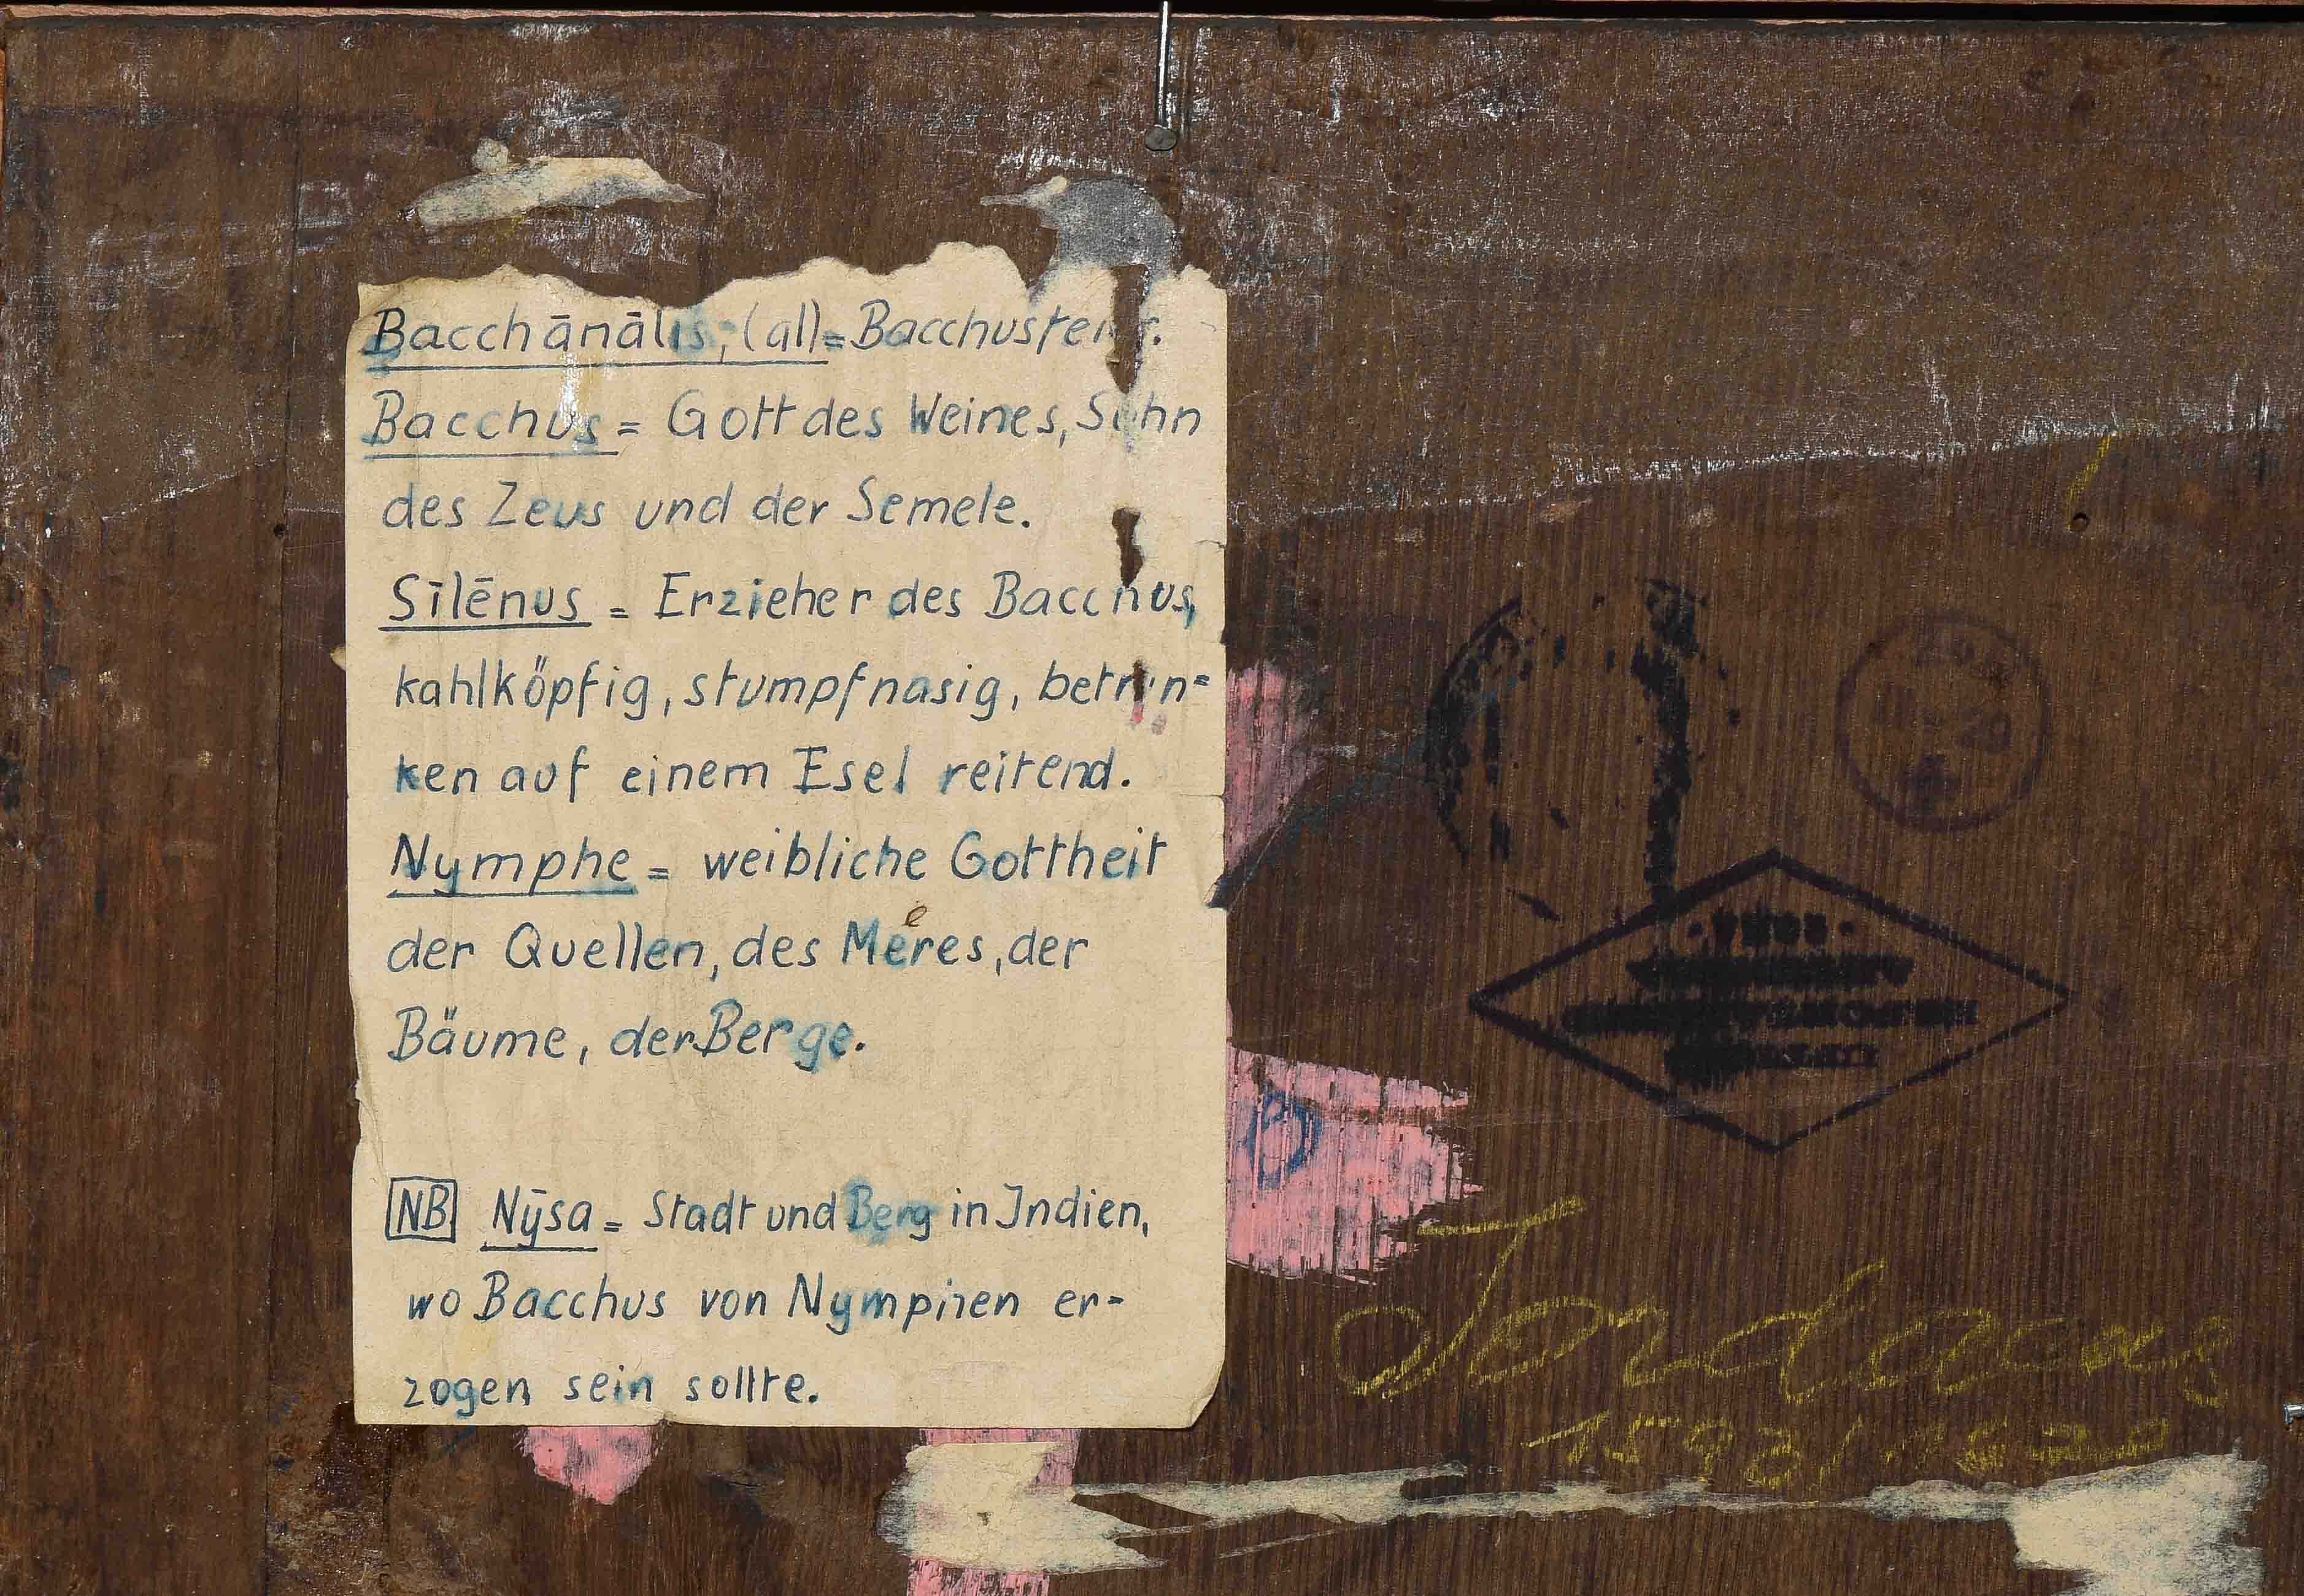 Bacchānālis, (al) = Bacchusfeier.
Bacchus = Gott des Weines, Sohn
des Zeus und der Semele.
Sīlēnus = Erzieher des Bacchus,
kahlköpfig, stumpfnasig, betrun=
ken auf einem Esel reitend.
Nymphe = weibliche Gottheit
der Quellen, des Meeres, der
Bäume, der Berge.
NB Nȳsa = Stadt und Berg in Indien,
wo Bacchus von Nymphen er-
zogen sein sollte.
Jordaens